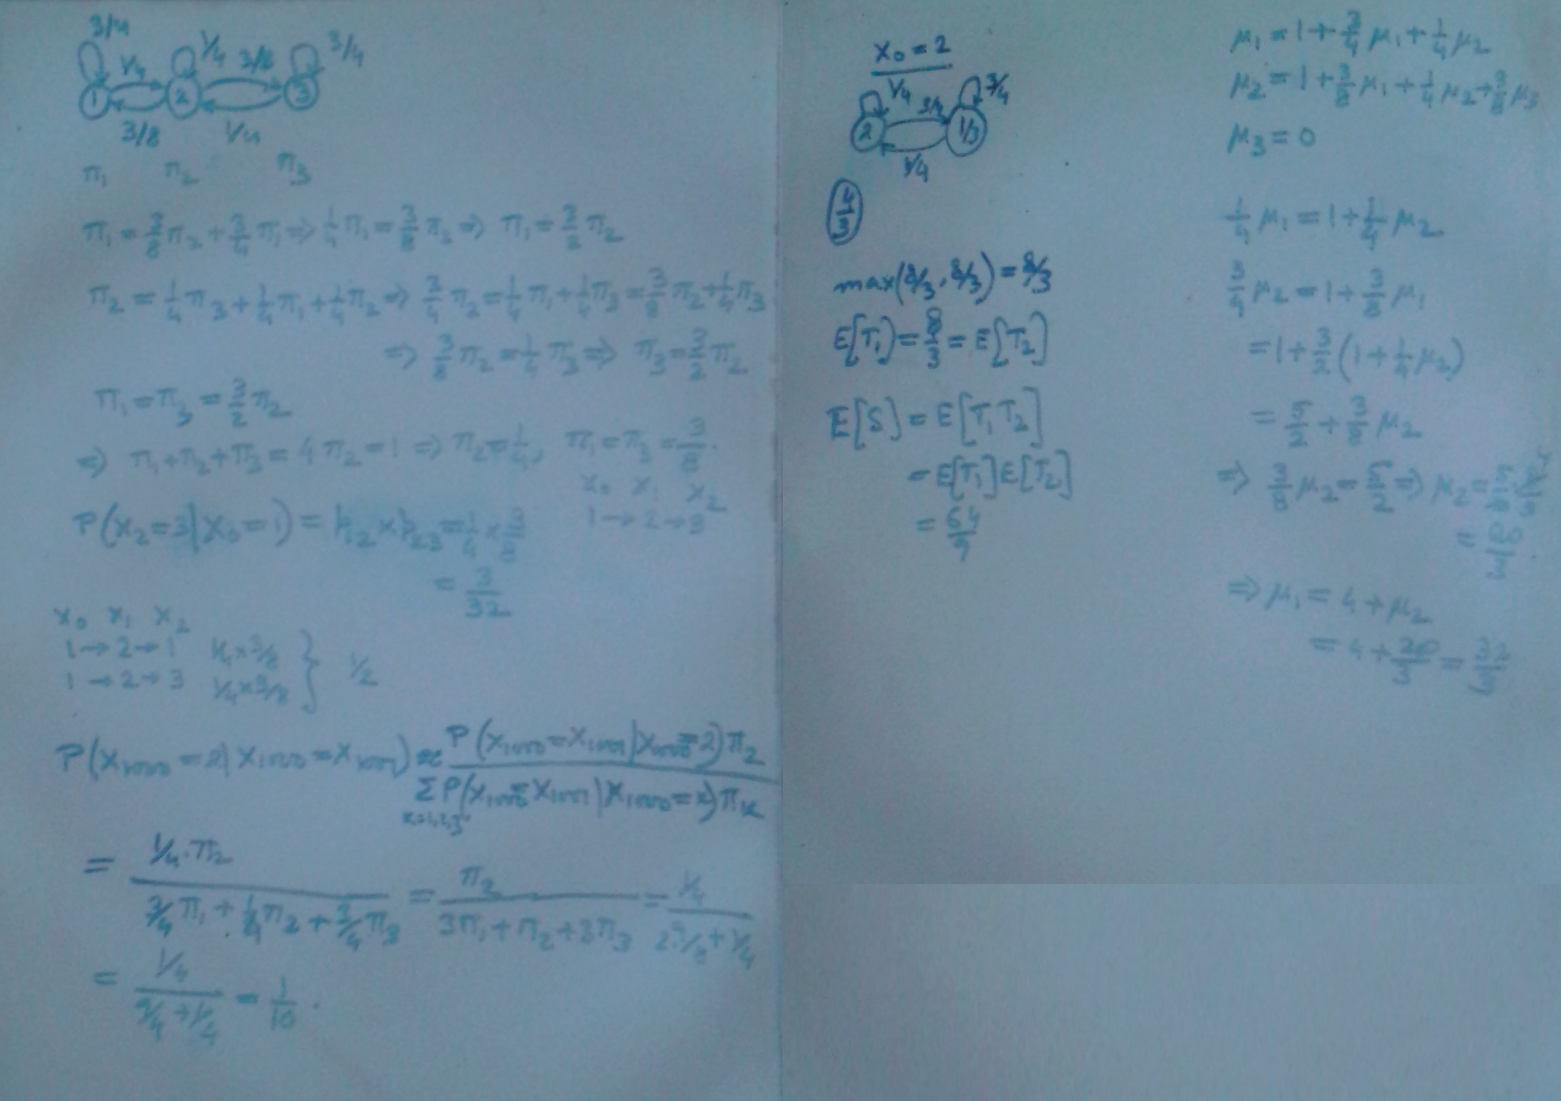 3/4 1/4 3/8 3/4
1/4
1 2 3
3/8 1/4
π₁ π₂ π₃
π₁ = 3/8 π₂ + 3/4 π₁ ⇒ 1/4 π₁ = 3/8 π₂ ⇒ π₁ = 3/2 π₂
π₂ = 1/4 π₃ + 1/4 π₁ + 1/4 π₂ ⇒ 3/4 π₂ = 1/4 π₁ + 1/4 π₃ = 3/8 π₂ + 1/4 π₃
⇒ 3/8 π₂ = 1/4 π₃ ⇒ π₃ = 3/2 π₂
π₁ = π₃ = 3/2 π₂
⇒ π₁ + π₂ + π₃ = 4π₂ = 1 ⇒ π₂ = 1/4, π₁ = π₃ = 3/8.
x₀ x₁ x₂
1 → 2 → 3
P(X₂=3|X₀=1) = p₁₂ × p₂₃ = 1/4 × 3/8
= 3/32
x₀ x₁ x₂
1 → 2 → 1 1/4 × 3/8
1 → 2 → 3 1/4 × 3/8 } 1/2
P(X₁₀₀₀ = 2 | X₁₀₀₀ = X₁₀₀₁) ≈ P(X₁₀₀₀ = X₁₀₀₁ | X₁₀₀₀ = 2) π₂ / Σ P(X₁₀₀₀ = X₁₀₀₁ | X₁₀₀₀ = x) πₓ
x=1,2,3
= 1/4 · π₂ / 3/4 π₁ + 1/4 π₂ + 3/4 π₃ = π₂ / 3π₁ + π₂ + 3π₃ = 1/4 / 2·9/8 + 1/4
= 1/4 / 9/4 + 1/4 = 1/10 .
X₀ = 2
1/4 3/4 3/4
2 1/3
1/4
4/3
max(8/3, 8/3) = 8/3
E[T₁] = 8/3 = E[T₂]
E[S] = E[T₁T₂]
= E[T₁]E[T₂]
= 64/9
μ₁ = 1 + 3/4 μ₁ + 1/4 μ₂
μ₂ = 1 + 3/8 μ₁ + 1/4 μ₂ + 3/8 μ₃
μ₃ = 0
1/4 μ₁ = 1 + 1/4 μ₂
3/4 μ₂ = 1 + 3/8 μ₁
= 1 + 3/2 (1 + 1/4 μ₂)
= 5/2 + 3/8 μ₂
⇒ 3/8 μ₂ = 5/2 ⇒ μ₂ = 5/2 · 8/3
= 20/3 .
⇒ μ₁ = 4 + μ₂
= 4 + 20/3 = 32/3